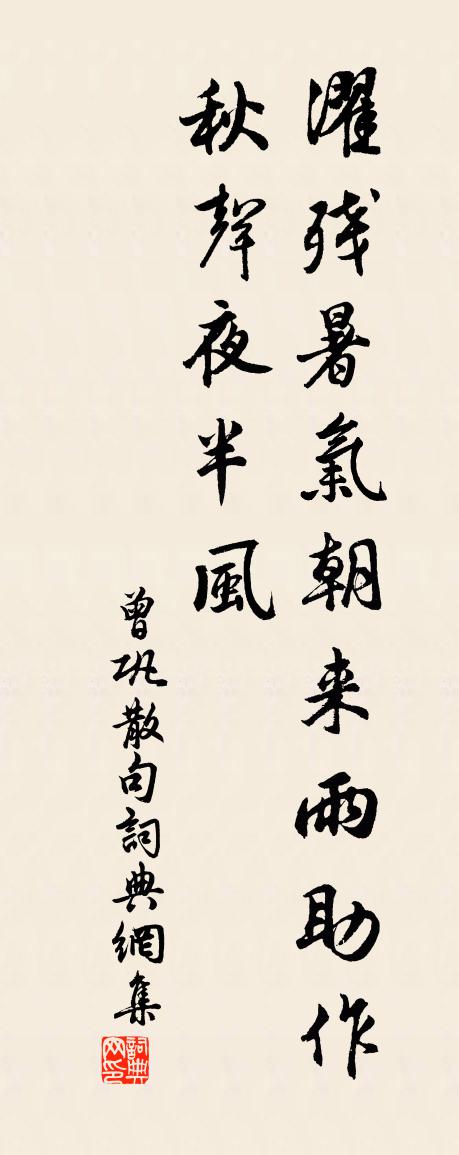 濯残暑氣朝来雨助作
秋聲夜半風
曾巩散句詞典網集
詞典网印